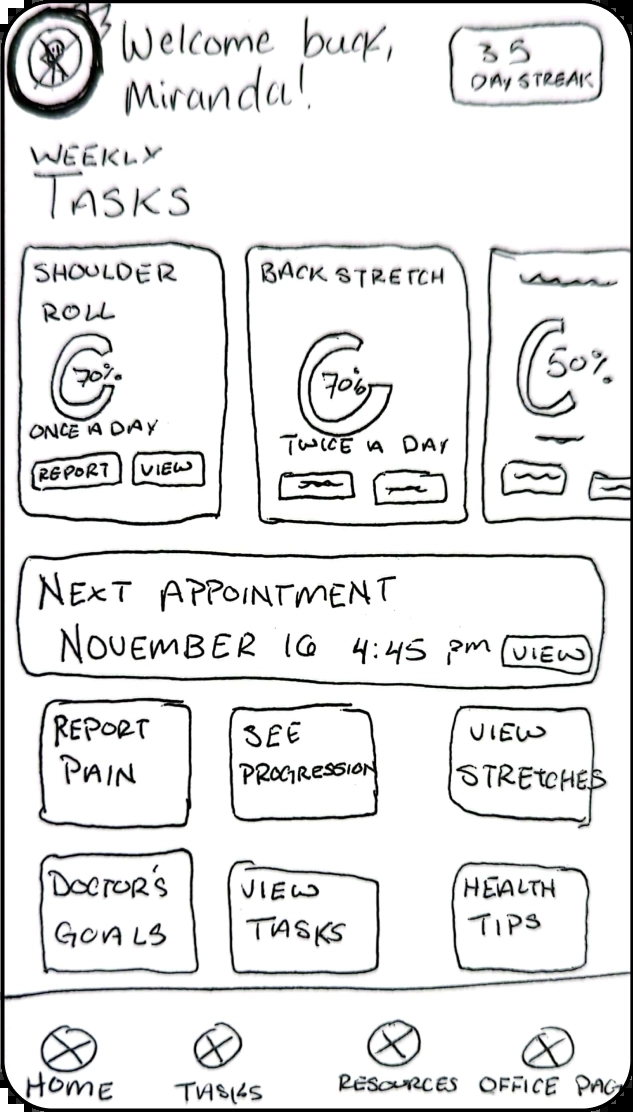 Welcome back,
Miranda!
35
DAY STREAK
WEEKLY
TASKS
SHOULDER
ROLL
70%
ONCE A DAY
REPORT
VIEW
BACK STRETCH
70%
TWICE A DAY
50%
NEXT APPOINTMENT
NOVEMBER 16 4:45 pm VIEW
REPORT
PAIN
SEE
PROGRESSION
VIEW
STREtCHES
DOCTOR'S
GOALS
VIEW
TASKS
HEALTH
TIPS
HOME
TASKS
RESOURCES
OFFICE PAG